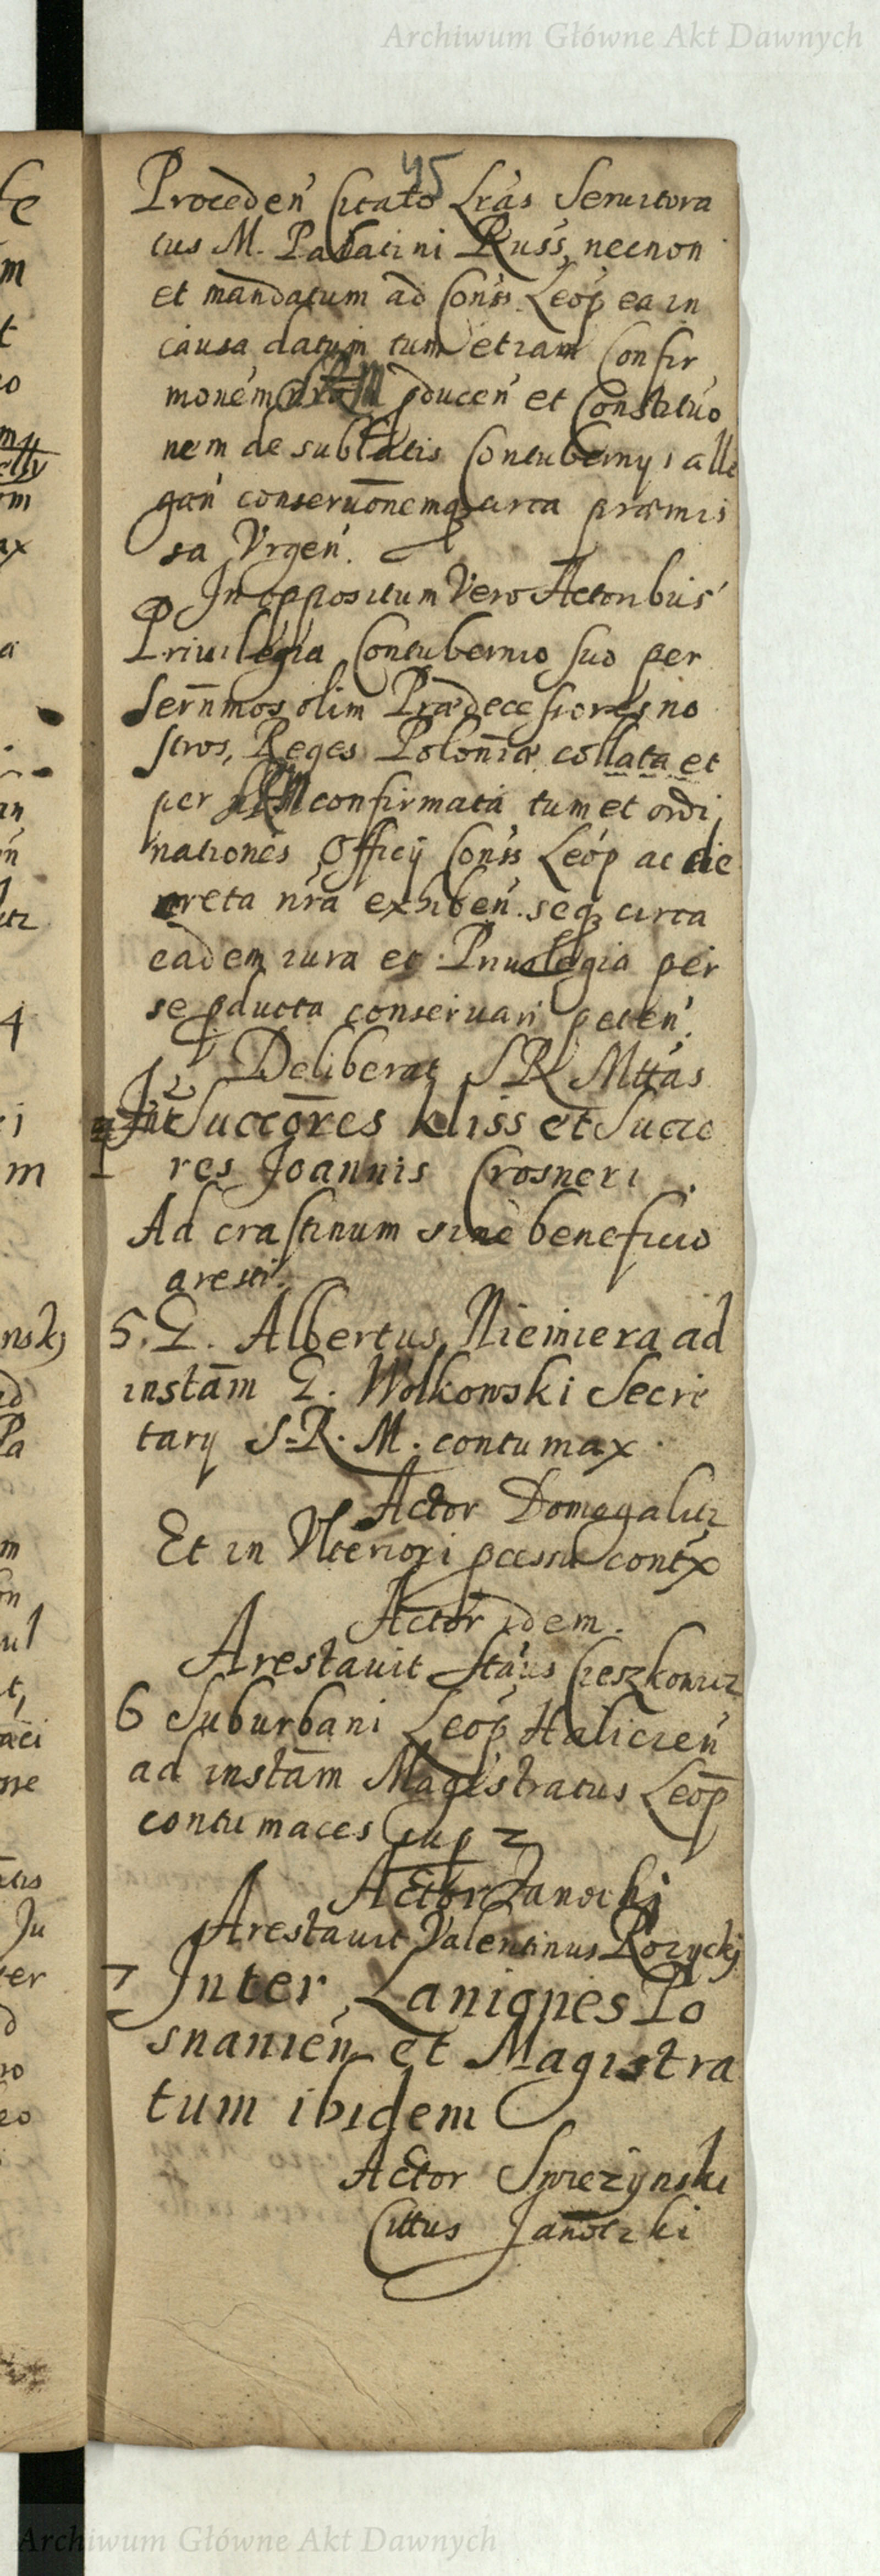 Archiwum Główne Akt Dawnych
45
Proceden Citato Lras Seruitora
tus M. Palatini Russ, necnon
et mandatum ad Conss Leop ea in
causa datum tum etiam Confir
monem pducen et Constituo
nem de sublatis Contubernys alle
gan conseruonemq circa præmis
sa Vrgen.
In oppositum Vero Actoribus
Priuilegia Contubernio suo per
Sernmos olim Prædecessores no
stros, Reges Poloniæ collata et
per confirmata tum et ordi
nationes Officij Conss Leop ac de
creta nra exhiben. seq circa
eadem iura et Priuilegia per
se pducta conseruari peten.
Deliberat S R Mttas
Int Succores Kliss et Succo
res Joannis Crosneri
Ad crastinum sine beneficio
aresti.
5. G. Albertus Niemiera ad
instam G. Wolkowski Secre
tarij S. R. M. contumax.
Actor Domagalicz
Et in Vlteriori pcessu contx
Actor idem.
Arestauit Staus Cieszkowicz
6 Suburbani Leop Halicien
ad instam Magistratus Leop
contumaces sup 2
Actor Janocki
Arestauit Valentinus Rozycki
7 Inter Laniones Po
snanien et Magistra
tum ibidem
Actor Swiezynski
Cittus Janoczki
Archiwum Główne Akt Dawnych